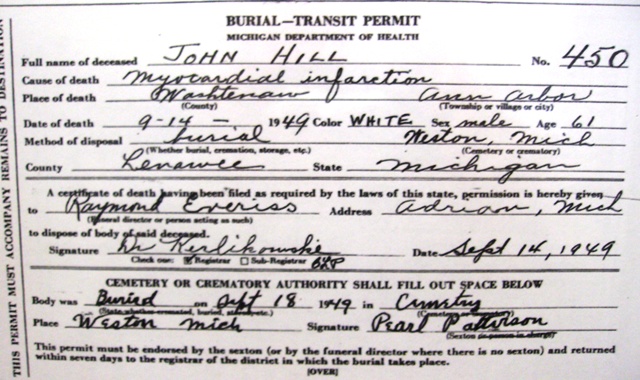 BURIAL—TRANSIT PERMIT
MICHIGAN DEPARTMENT OF HEALTH
Full name of deceased JOHN HILL No. 450
Cause of death myocardial infarction
Place of death Washtenaw Ann Arbor
(County) (Township or village or city)
Date of death 9-14- 1949 Color WHITE Sex male Age 61
Method of disposal burial Weston, Mich
(Whether burial, cremation, storage, etc.) (Cemetery or crematory)
County Lenawee State Michigan
A certificate of death having been filed as required by the laws of this state, permission is hereby given
to Raymond Everiss Address Adrian, Mich
(Funeral director or person acting as such)
to dispose of body of said deceased.
Signature Dr Kerlikowske Date Sept 14, 1949
Check one: Registrar Sub-Registrar
CEMETERY OR CREMATORY AUTHORITY SHALL FILL OUT SPACE BELOW
Body was Buried on Sept 18 1949 in Cemetry
(State whether cremated, buried, stored, etc.) (Cemetery or crematory)
Place Weston Mich Signature Pearl Patterson
(Sexton or person in charge)
This permit must be endorsed by the sexton (or by the funeral director where there is no sexton) and returned
within seven days to the registrar of the district in which the burial takes place.
[OVER]
THIS PERMIT MUST ACCOMPANY REMAINS TO DESTINATION